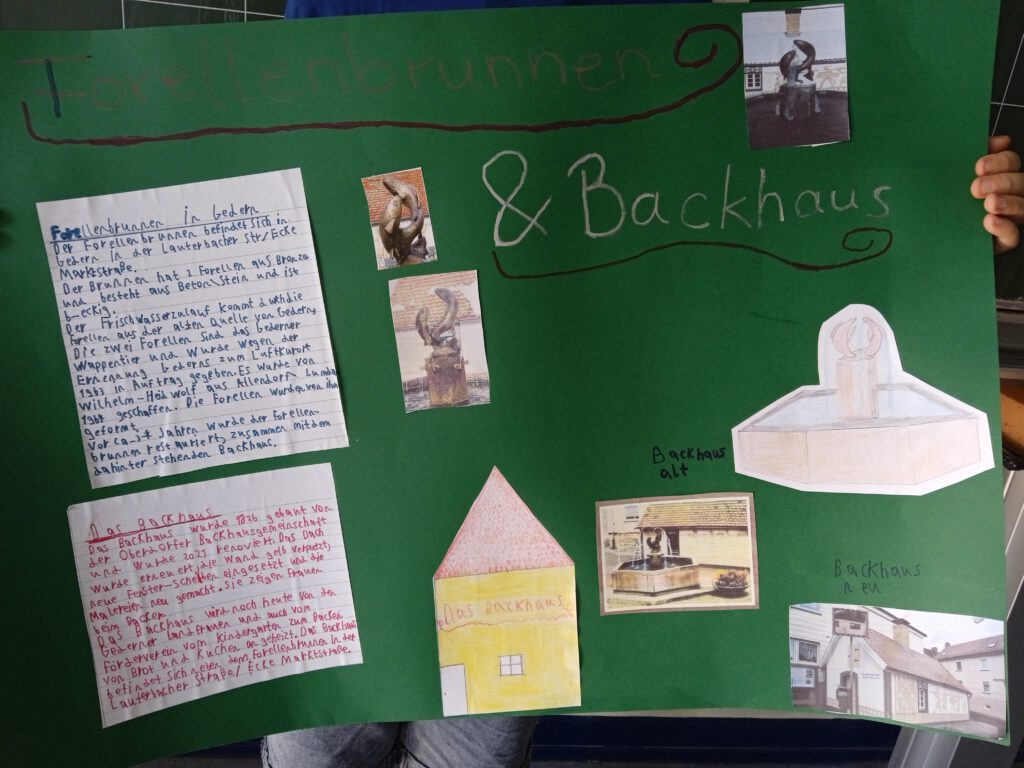 Forellenbrunnen
& Backhaus
Forellenbrunnen in Gedern
Der Forellenbrunnen befindet sich in
Gedern in der Lauterbacher Str/Ecke
Marktstraße.
Der Brunnen hat 2 Forellen aus Bronze
und besteht aus Beton Stein und ist
6-eckig.
Der Frischwasserzulauf kommt durch die
Forellen aus der alten Quelle von Gedern,
Die zwei Forellen sind das Gederner
Wappentier und wurde wegen der
Ernennung Gederns zum Luftkurort
1963 in Auftrag gegeben. Es wurde von
Wilhelm-Heid Wolf aus Allendorf Lumda
1964 geschaffen. Die Forellen wurden von ihm
geformt.
Vor ca-3-4 Jahren wurde der Forellen-
brunnen restauriert, zusammen mit dem
dahinter stehenden Backhaus.
Das Backhaus
Das Backhaus wurde 1826 gebaut von
der Oberdorfer Backhausgemeinschaft
und wurde 2021 renoviert. Das Dach
wurde erneuert, die Wand gelb verputzt,
neue Fenster-Scheiben eingesetzt und die
Malereien neu gemacht. Sie zeigen Frauen
beim Backen
Das Backhaus wird noch heute von den
Gederner Landfrauen und auch vom
Förderverein vom Kindergarten zum Backen
von Brot und Kuchen angeheizt. Das Backhaus
befindet sich neben dem Forellenbrunnen in der
Lauterbacher Straße/Ecke Marktstraße.
Das Backhaus
Backhaus
alt
Backhaus
neu